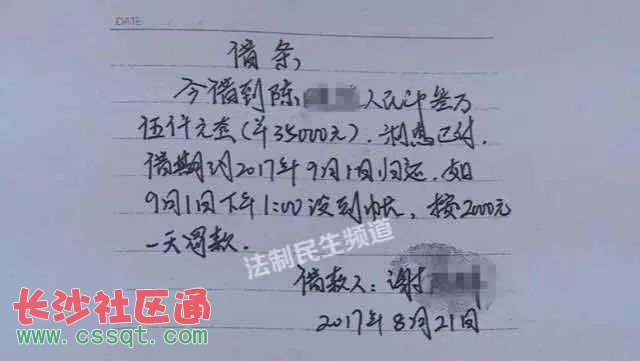 DATE
借条,
今借到陈 人民币叁万
伍仟元整(￥35000元),利息已付,
借期到2017年9月1日归还,如
9月1日下午1:00没到帐,按2000元
一天罚款.
法制民生频道
借款人:谢
2017年8月21日
长沙社区通
www.cssqt.com